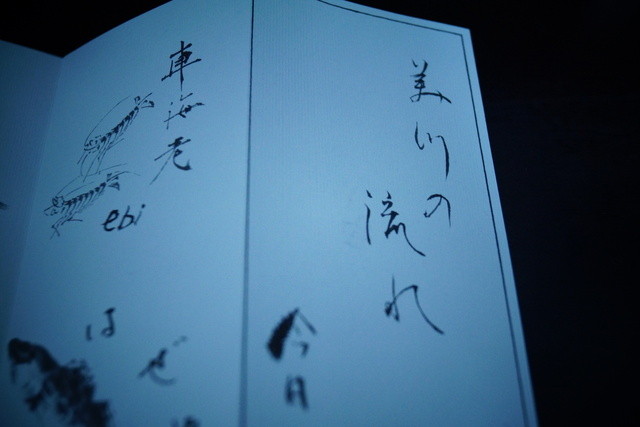 美川の
流れ
今日
車海老
ebi
はぜ